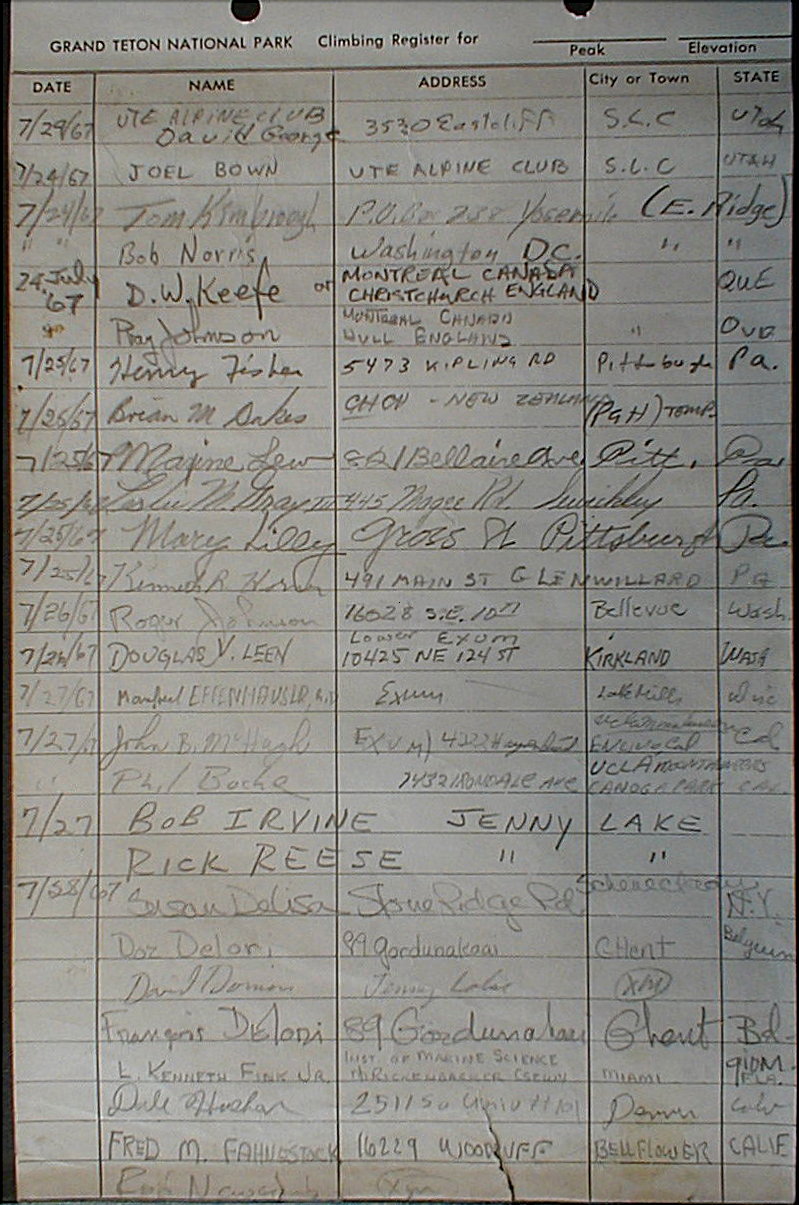 GRAND TETON NATIONAL PARK Climbing Register for
Peak Elevation
DATE NAME ADDRESS City or Town STATE
7/29/67 UTE ALPINE CLUB David George 3530 Eastcliff S.L.C Utah
7/24/67 JOEL BOWN UTE ALPINE CLUB S.L.C UTAH
7/24/67 Tom Kimbrough P.O. Box 288 Yosemite (E. Ridge)
" " Bob Norris Washington D.C. " "
24 July '67 D.W. Keefe or MONTREAL CANADA CHRISTCHURCH ENGLAND QUE
Ray Johnson MONTREAL CANADA HULL ENGLAND "
7/25/67 Henry Fisher 5473 KIPLING RD Pittsburgh Pa.
7/25/67 Brian M Oakes CHCH - NEW ZEALAND (PGH) TEMP.
7/25/67 Maxine Lew 821 Bellaire Ave Pitt. Pa
7/25/67 Leslie M. Gray III 445 Magee Rd. Sewickley Pa.
7/25/67 Mary Lilley Gross St Pittsburgh Pa
7/25/67 Kenneth R. 491 MAIN ST GLENWILLARD PA
7/26/67 Roger Johnson 16028 S.E. 10TH Bellevue Wash.
Lower EXUM
7/26/67 DOUGLAS V. LEEN 10425 NE 124 ST KIRKLAND WASH
7/27/67 Manfred Exum Lake Mills Wisc
7/27/67 John B. McHugh EXUM) 4222 ENCINO Cal Cal
" Phil Bache 7432 IRONDALE AVE UCLA MOUNTAINEERS CANOGA PARK CAL.
7/27 BOB IRVINE JENNY LAKE
RICK REESE " "
7/28/67 Susan Delisa Stone Ridge Rd. Schenectady N.Y.
Doz Delori 89 gordunakaai GHent Belgium
David Dornan Jenny Lake
François Delori 89 Gordunakaai Ghent Bel-gium
L. KENNETH FINK JR. INST. OF MARINE SCIENCE RICKENBACKER CSEWY MIAMI FLA.
Dale 2511 So Univ Denver Colo
FRED M. FAHNESTOCK 16229 WOODRUFF BELLFLOWER CALIF